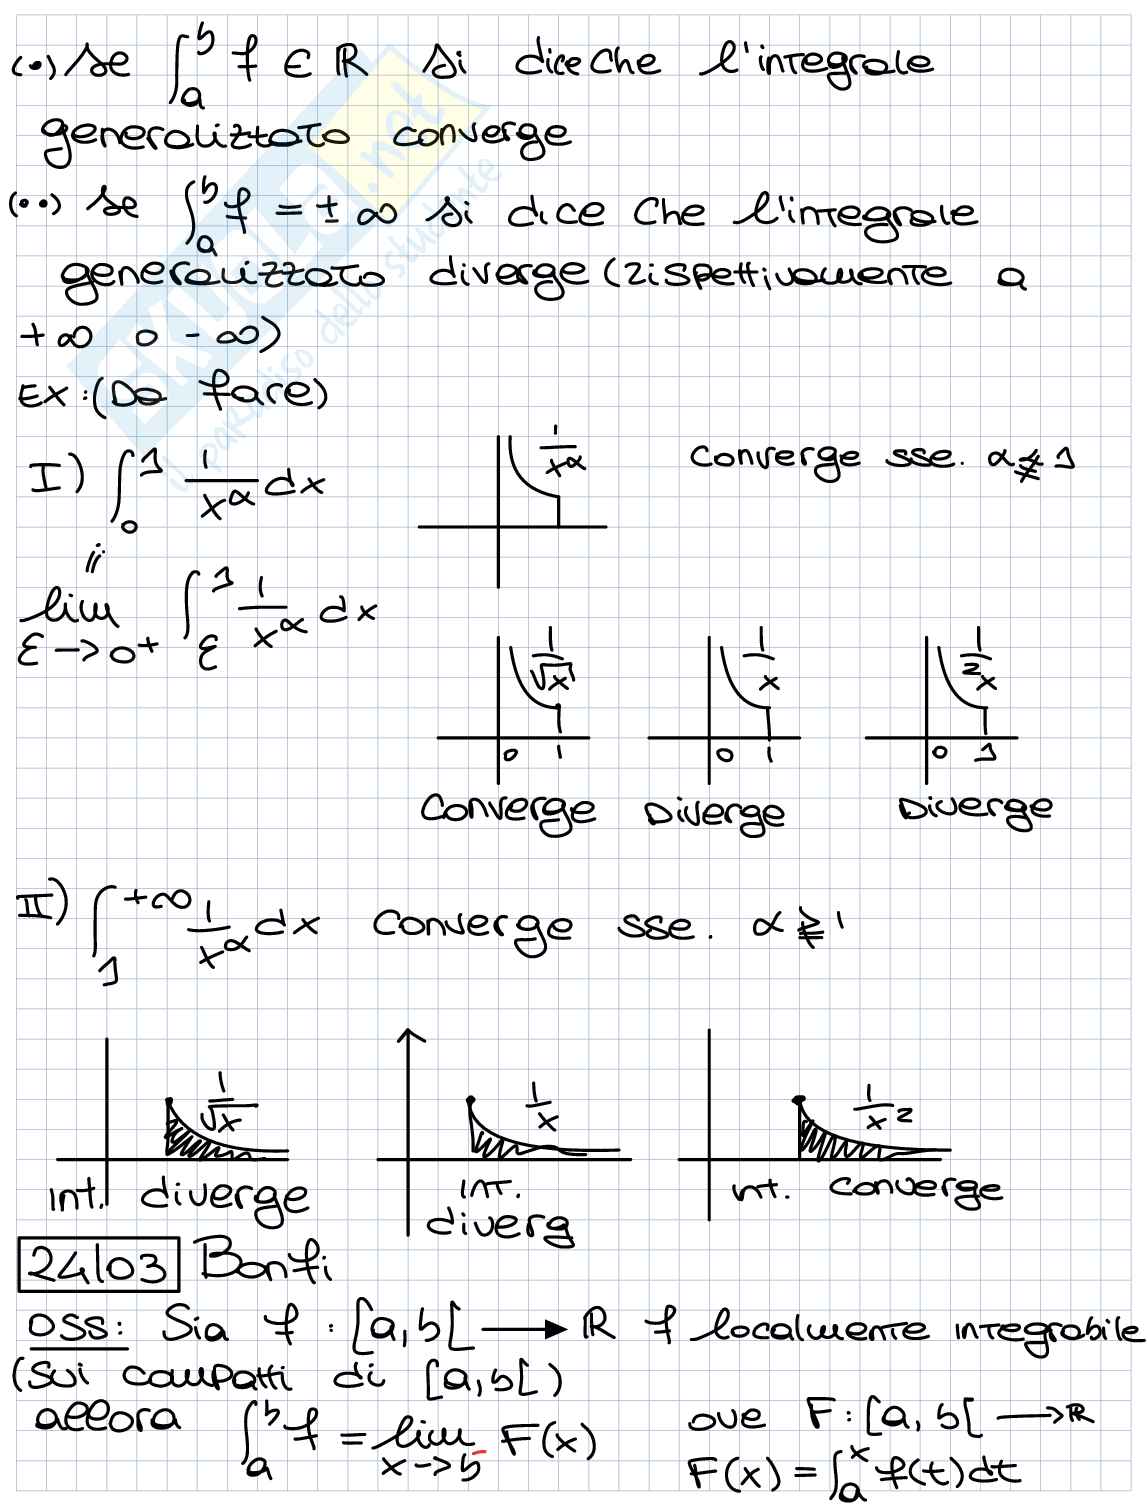 (•) Se ∫_a^b f ∈ ℝ si dice che l'integrale
generalizzato converge
(••) Se ∫_a^b f = ±∞ si dice che l'integrale
generalizzato diverge (rispettivamente a
+∞ o -∞)
EX: (Da fare)
I) ∫_0^1 1/x^α dx
1/x^α
Converge sse. α ≨ 1
lim_{ε→0+} ∫_ε^1 1/x^α dx
1/√x 1/x 1/2x
0 1 0 1 0 1
Converge Diverge Diverge
II) ∫_1^{+∞} 1/x^α dx Converge sse. α ≩ 1
1/√x 1/x 1/x²
int. diverge int. diverg int. converge
24/03 Bonfi
OSS: Sia f : [a,b[ → ℝ f localmente integrabile
(sui compatti di [a,b[)
allora ∫_a^b f = lim_{x→b⁻} F(x) ove F: [a,b[ → ℝ
F(x) = ∫_a^x f(t)dt
SKUOLA.net
il paradiso dello studente